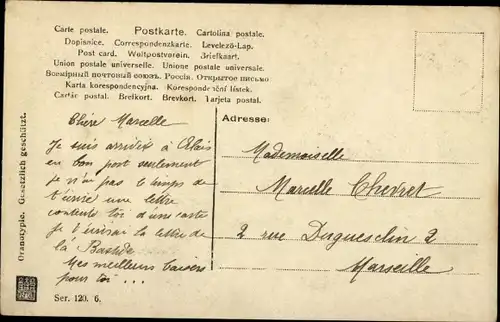 Carte postale. Postkarte. Cartolina postale.
Dopisnice. Correspondenzkarte. Levelező-Lap.
Post card. Weltpostverein. Briefkaart.
Union postale universelle. Unione postale universale.
Всемірный почтовый союзъ. Россія. Открытое письмо
Karta korespondencyjna. Korespondenční lístek.
Cartăe postal. Brefkort. Brevkort. Tarjeta postal.
Adresse:
Chère Marcelle
Je suis arrivée à Alais
en bon port seulement
je n'ai pas le temps de
t'écrire une lettre
contente toi d'une carte
je t'écrirai la lettre de
la Bastide
Mes meilleurs baisers
pour toi ...
Mademoiselle
Marcelle Chevret
2 rue Duguesclin 2
Marseille
Granotypie. Gesetzlich geschützt.
Ser. 120. 6.